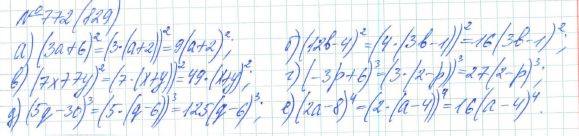 №772(829)
а) (3a+6)²=(3·(a+2))²=9(a+2)²; б) (12b-4)²=(4·(3b-1))²=16(3b-1)²;
в) (7x+7y)²=(7·(x+y))²=49·(x+y)²; г) (-3p+6)³=(3·(2-p))³=27(2-p)³;
д) (5q-30)³=(5·(q-6))³=125(q-6)³; е) (2a-8)⁴=(2·(a-4))⁴=16(a-4)⁴.